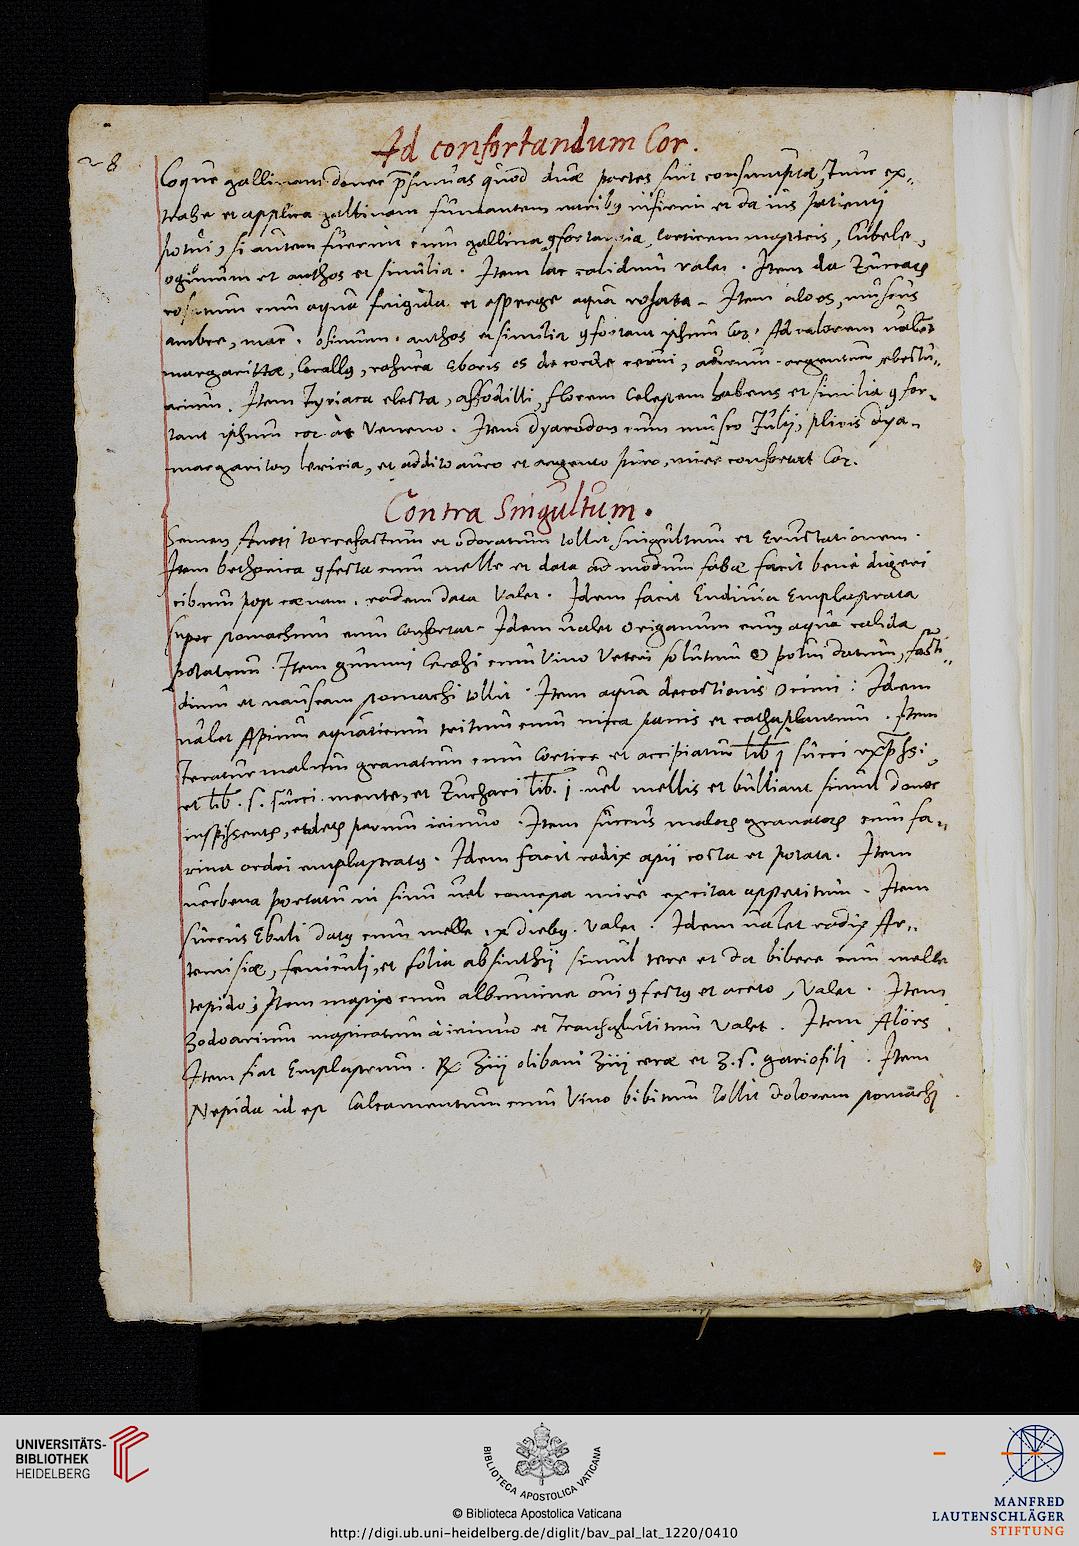 Ad confortandum Cor.
28
Coque gallinam donec p̄sumas quod duæ partes sint consumptæ, Tunc ex-
trahe et applica gallinam fumantem naribus infirmi et da ius patienti
potui, si autem fuerint cum gallina 9fortantia, corticem masticis, Cubele,
ogimum et anthos et similia. Item lac calidum valet. Item da Zuccarum
rosatum cum aqua frigida et asperge aqua rosata - Item aloes, muscus
ambre, mac. osimum. anthos et similia 9fortant ipsum Cor. Ad valorem valent
margarittæ, Corallus, rasura Eboris os de corde cervi, aurum. argentum, electu-
arium. Item Tyriaca electa, affodilli, florem Celestem habens et similia 9for-
tant ipsum cor. ac Veneno. Item dyarodon cum musco Julij, pliris dya-
margariton leticia, et addito auro et argento puro, mire confortat Cor.
Contra Singultum.
Semen Aneti torrefactum et odoratum tollit singultum et Eructationem.
Item bethonica 9fecta cum melle et data ad modum fabæ facit bene digeri
cibum post cænam. eadem data valet. Idem facit Endivia Emplastrata
super stomachum eum Confortat - Idem valet origanum cum aqua calida
potatum. Item gummi Cerasi cum Vino Veteri solutum et potui datum, fasti-
dium et nauseam stomachi tollit. Item aqua decoctionis ocimi: Idem
valet Apium aquaticum tritum cum mica panis et cathaplasmum. Item
Teratur malum granatum cum Cortice et accipiatur lib j succi expressi,
et lib. s. succi mente, et Zuchari lib. j vel mellis et bulliant simul donec
inspissentur, et detur parum ieiuno. Item succus malorum granatorum cum fa-
rina ordei emplastratus. Idem facit radix apii cocta et potata. Item
verbena portatum in sinu vel comesta mire excitat appetitum. Item
succus Ebuli datus cum melle ix diebus. valet. Idem valet radix Ar-
temisiæ, feniculi, et folia absinthij simul tere et da bibere cum melle
tepido; Item mastix cum albumine ovi 9fectus et aceto, valet. Item
Zodoarium masticatum a ieiuno et Transglutitum valet. Item Aloes
Item fiat Emplastrum. ℞ ʒiij olibani ʒiij ceræ et ʒ.s. gariofili. Item
Nepida id est Calcamentum cum Vino bibitum Tollit dolorem stomachi.
UNIVERSITÄTS-
BIBLIOTHEK
HEIDELBERG
BIBLIOTECA APOSTOLICA VATICANA
© Biblioteca Apostolica Vaticana
http://digi.ub.uni-heidelberg.de/diglit/bav_pal_lat_1220/0410
MANFRED
LAUTENSCHLÄGER
STIFTUNG